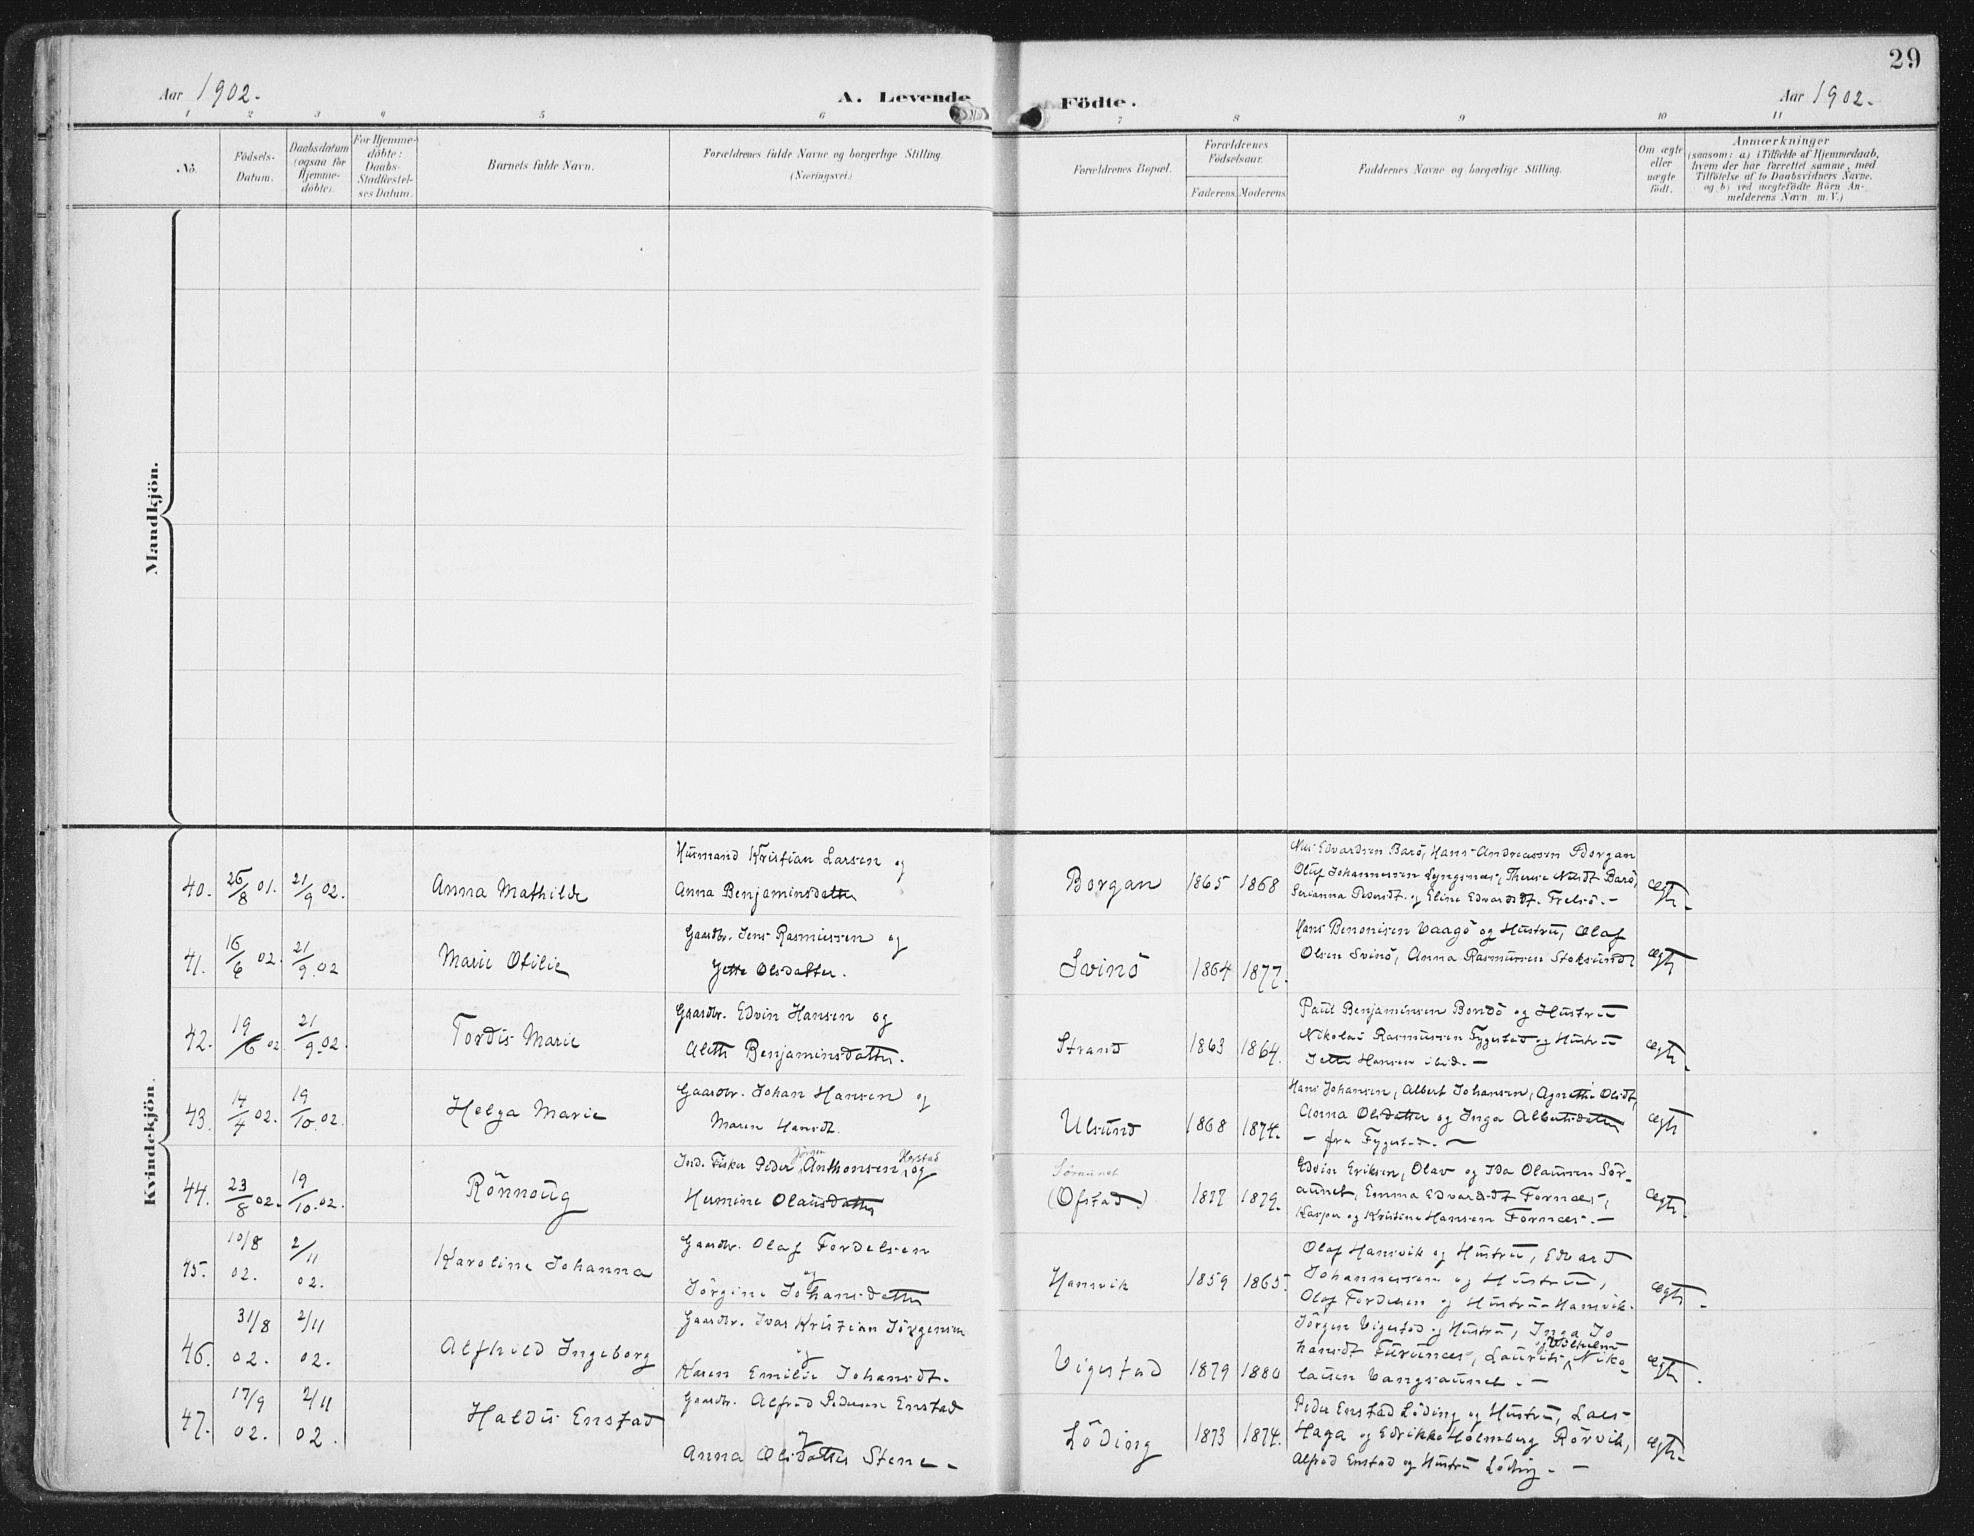 29
Aar 1902.
A. Levende
Födte.
Aar 1902.
1 2 3 4 5 6 7 8 9 10 11
No.
Födsels-
Datum.
Daabsdatum
(ogsaa för
Hjemme-
döbte).
For Hjemme-
döbte:
Daabs-
Stadfæstel-
ses Datum.
Barnets fulde Navn.
Forældrenes fulde Navne og borgerlige Stilling.
(Næringsvei.)
Forældrenes Bopæl.
Forældrenes
Födselsaar.
Faderens. Moderens.
Faddernes Navne og borgerlige Stilling.
Om ægte
eller
uægte
födt.
Anmærkninger
(saasom: a) i Tilfælde af Hjemmedaab,
hvem der har forrettet samme, med
Tilföielse af to Daabsvidners Navne,
og b) ved uægtefödte Börn An-
melderens Navn m. V.)
Mandkjön.
Kvindekjön.
40. 26/8 01. 21/9 02.
Anna Mathilde
Husmand Kristian Larsen og
Anna Benjaminsdatter
Borgan 1865 1868
Nils Edvardsen Barö, Hans Andreassen Borgan
Oluf Johannessen Lyngsnes, Therese Nilsdt Barö,
Serianna Pedersdt. og Eline Edvardsdt. Frelsö. -
ægte.
41. 16/6 02. 21/9 02
Marie Otilie
Gaardbr. Jens Rasmussen og
Jette Olsdatter.
Svinö 1864 1877.
Hans Benonisen Vaagö og Hustru, Olaf
Olsen Svinö, Anna Rasmussen Stoksund
ægte
42. 19/6 02. 21/9 02.
Tordis Marie
Gaardbr. Edvin Hansen og
Alette Benjaminsdatter.
Strand 1863 1864.
Paul Benjaminsen Bondö og Hustru
Nikolai Rasmussen Fygestad og Hustru
Jette Hansen ibid. -
ægte.
43. 14/4 02. 19/10 02.
Helga Marie
Gaardbr. Johan Hansen og
Maren Hansdt.
Ulsund 1868 1874.
Hans Johansen, Albert Johansen, Agnethe Olsdt,
Anna Olsdatter og Inga Albertsdatter
- fra Fygestad. -
ægte
44. 23/8 02. 19/10 02.
Rönnoug
Ind. Fisker Peder Jörgen Anthonsen Hopstad og
Hermine Olausdatter
Söraunet
(Ofstad) 1877 1879.
Edvin Eriksen, Olav og Ida Olaussen Sör-
aunet, Emma Edvardsdt Fornæs,
Kasper og Kristine Hansen Fornæs. -
ægte.
45. 10/8 02. 2/11 02.
Karoline Johanna
Gaardbr. Olaf Fordelsen
og
Jörgine Johansdatter
Hansvik 1859 1865.
Olaf Hansvik og Hustru, Edvard
Johannessen og Hustru,
Olaf Fordelsen og Hustru Hansvik.
ægte.
46. 31/8 02. 2/11 02.
Alfhild Ingeborg
Gaardbr. Ivar Kristian Jörgensen
og
Karen Emilie Johansdt.
Vigestad 1879 1880
Jörgen Vigestad og Hustru, Inga Jo
hansdt Furunæs, Laurits og Vilhelm Niko-
laisen Vangsaunet. -
ægte.
47. 17/9 02. 2/11 02.
Haldis Enstad
Gaardbr. Alfred Pedersen Enstad
og
Anna Olsdatter Stene -
Löding 1873 1874.
Peder Enstad Löding og Hustru, Lars
Haga og Edrikke Holmberg Rörvik,
Alfred Enstad og Hustru Löding. -
ægte.